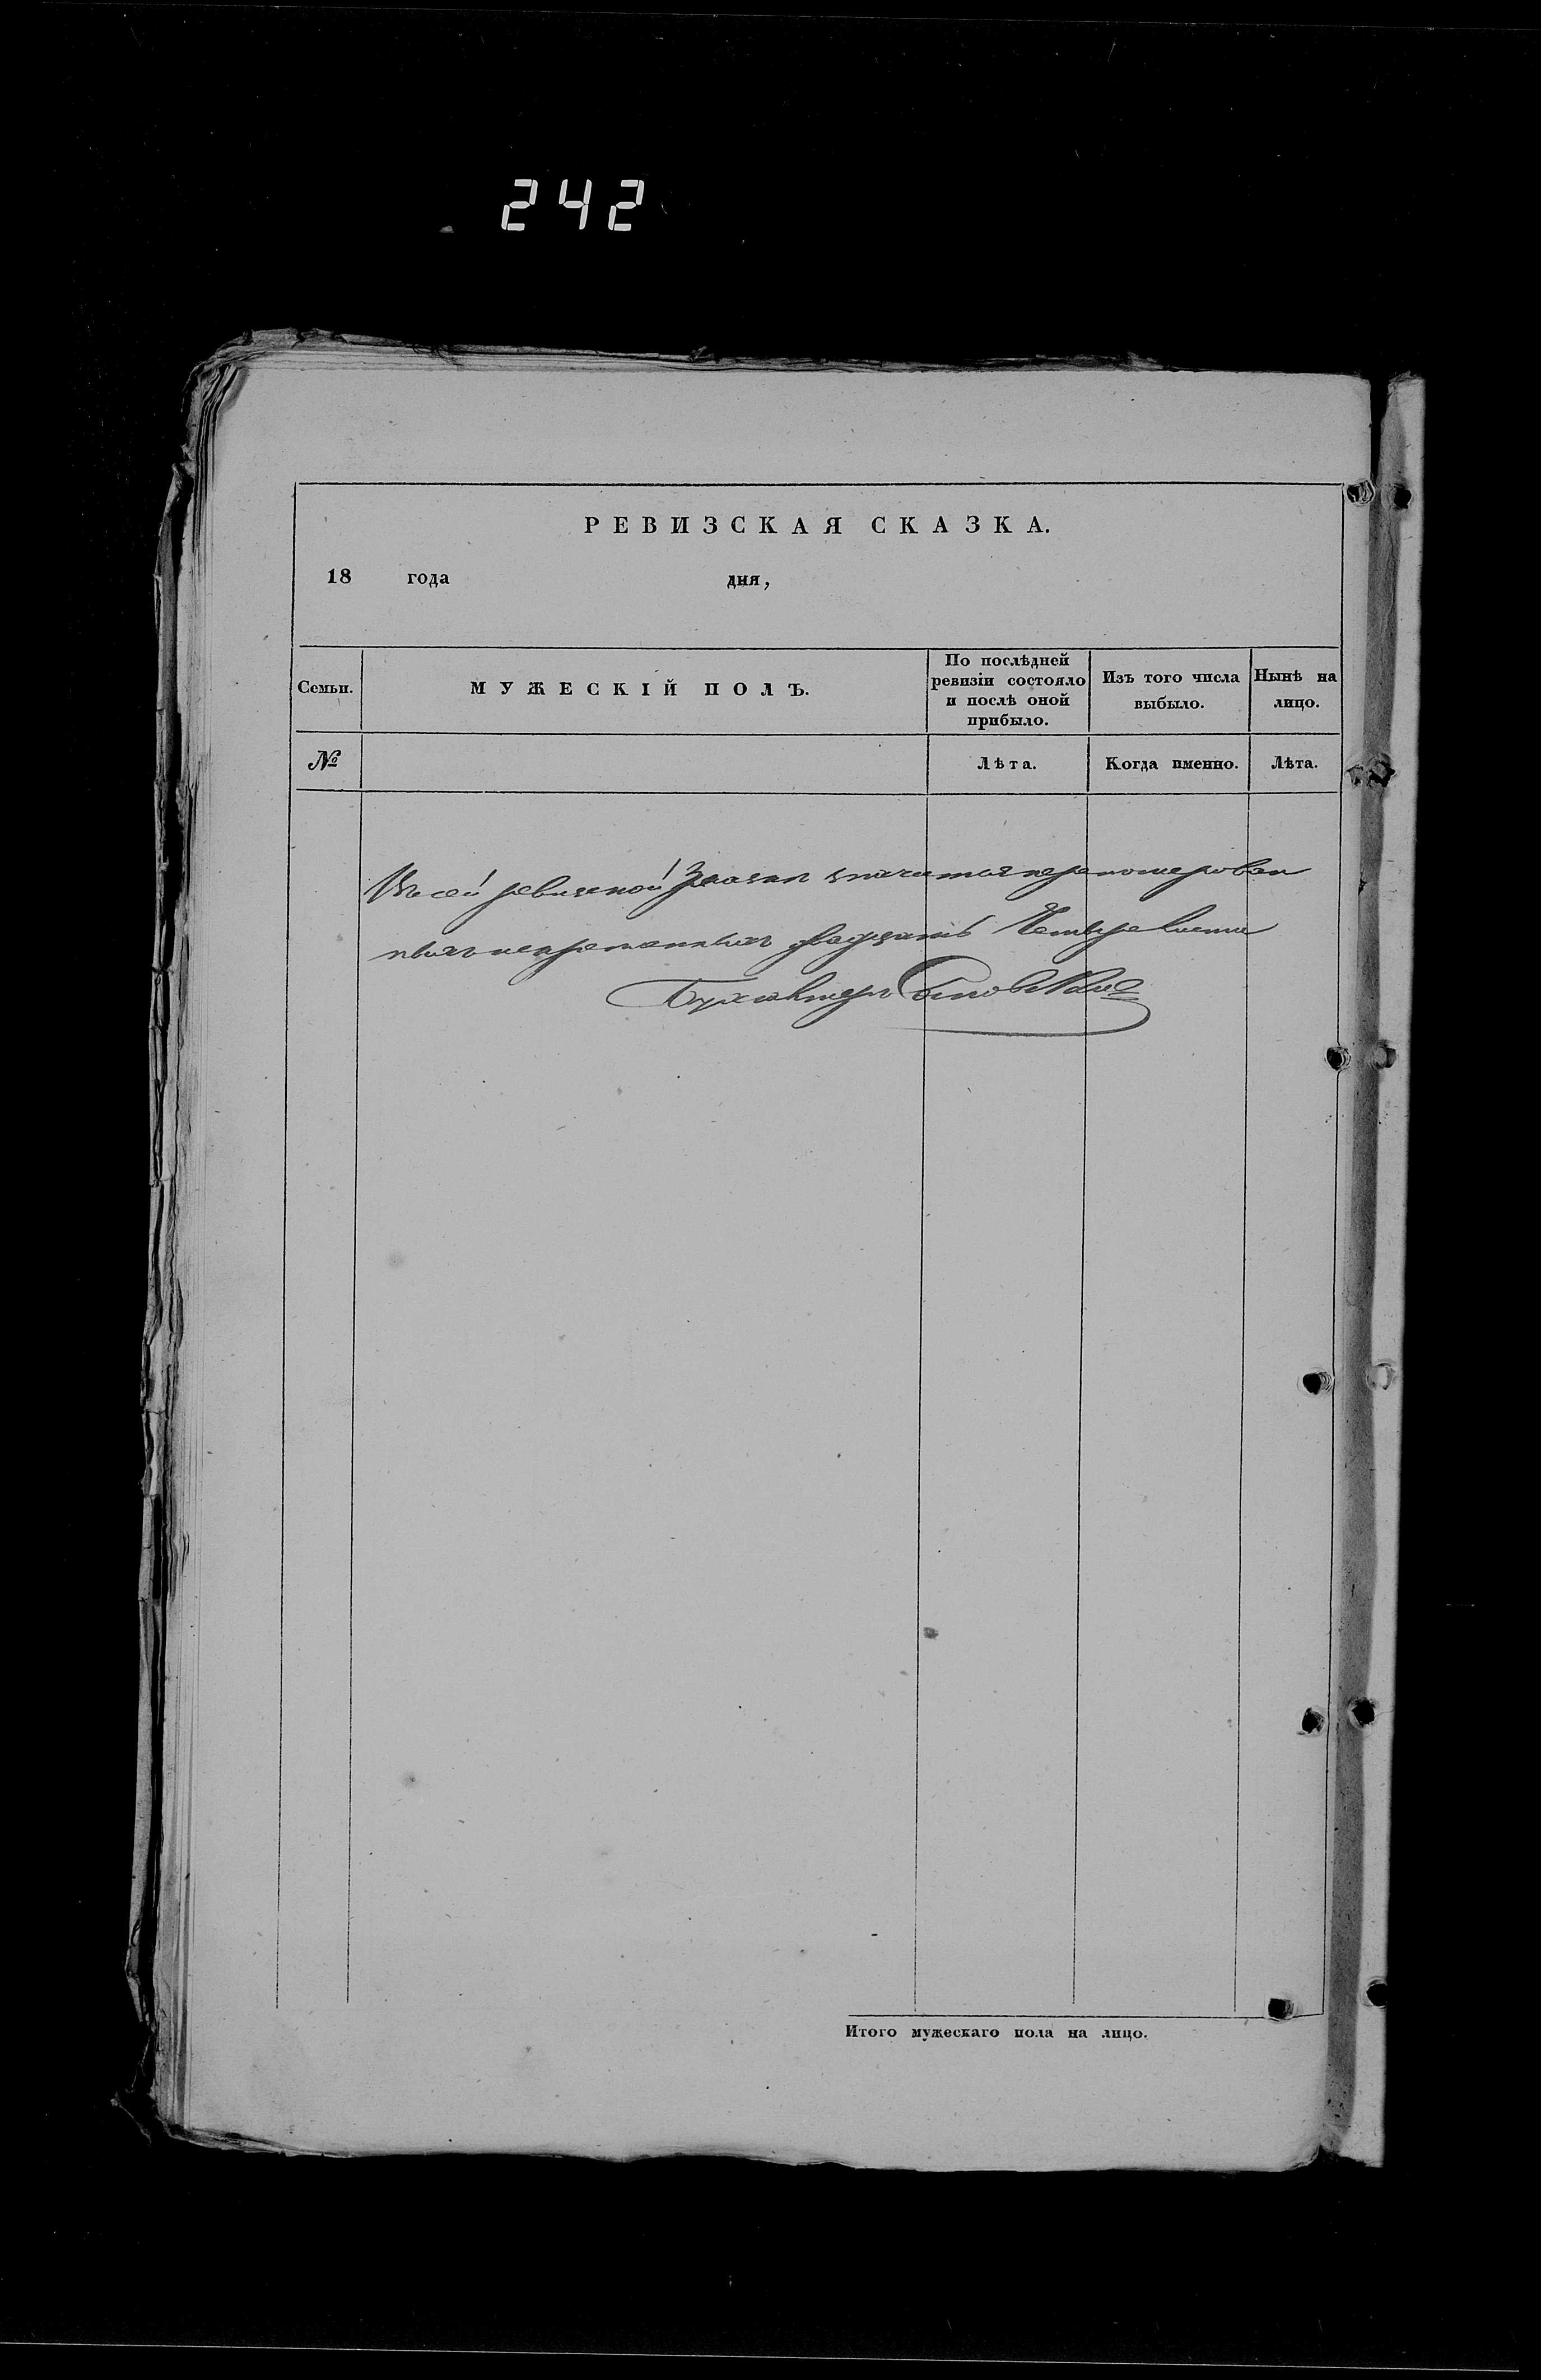 242
РЕВИЗСКАЯ СКАЗКА.
18 года дня,
Семьи.
МУЖЕСКІЙ ПОЛЪ.
По послѣдней
ревизіи состояло
и послѣ оной
прибыло.
Изъ того числа
выбыло.
Нынѣ на
лицо.
№
Лѣта.
Когда именно.
Лѣта.
Въ сей ревизской значится перономерован
ныхъ двадцать Четыре листа
Бухгалтеръ
Итого мужескаго пола на лицо.